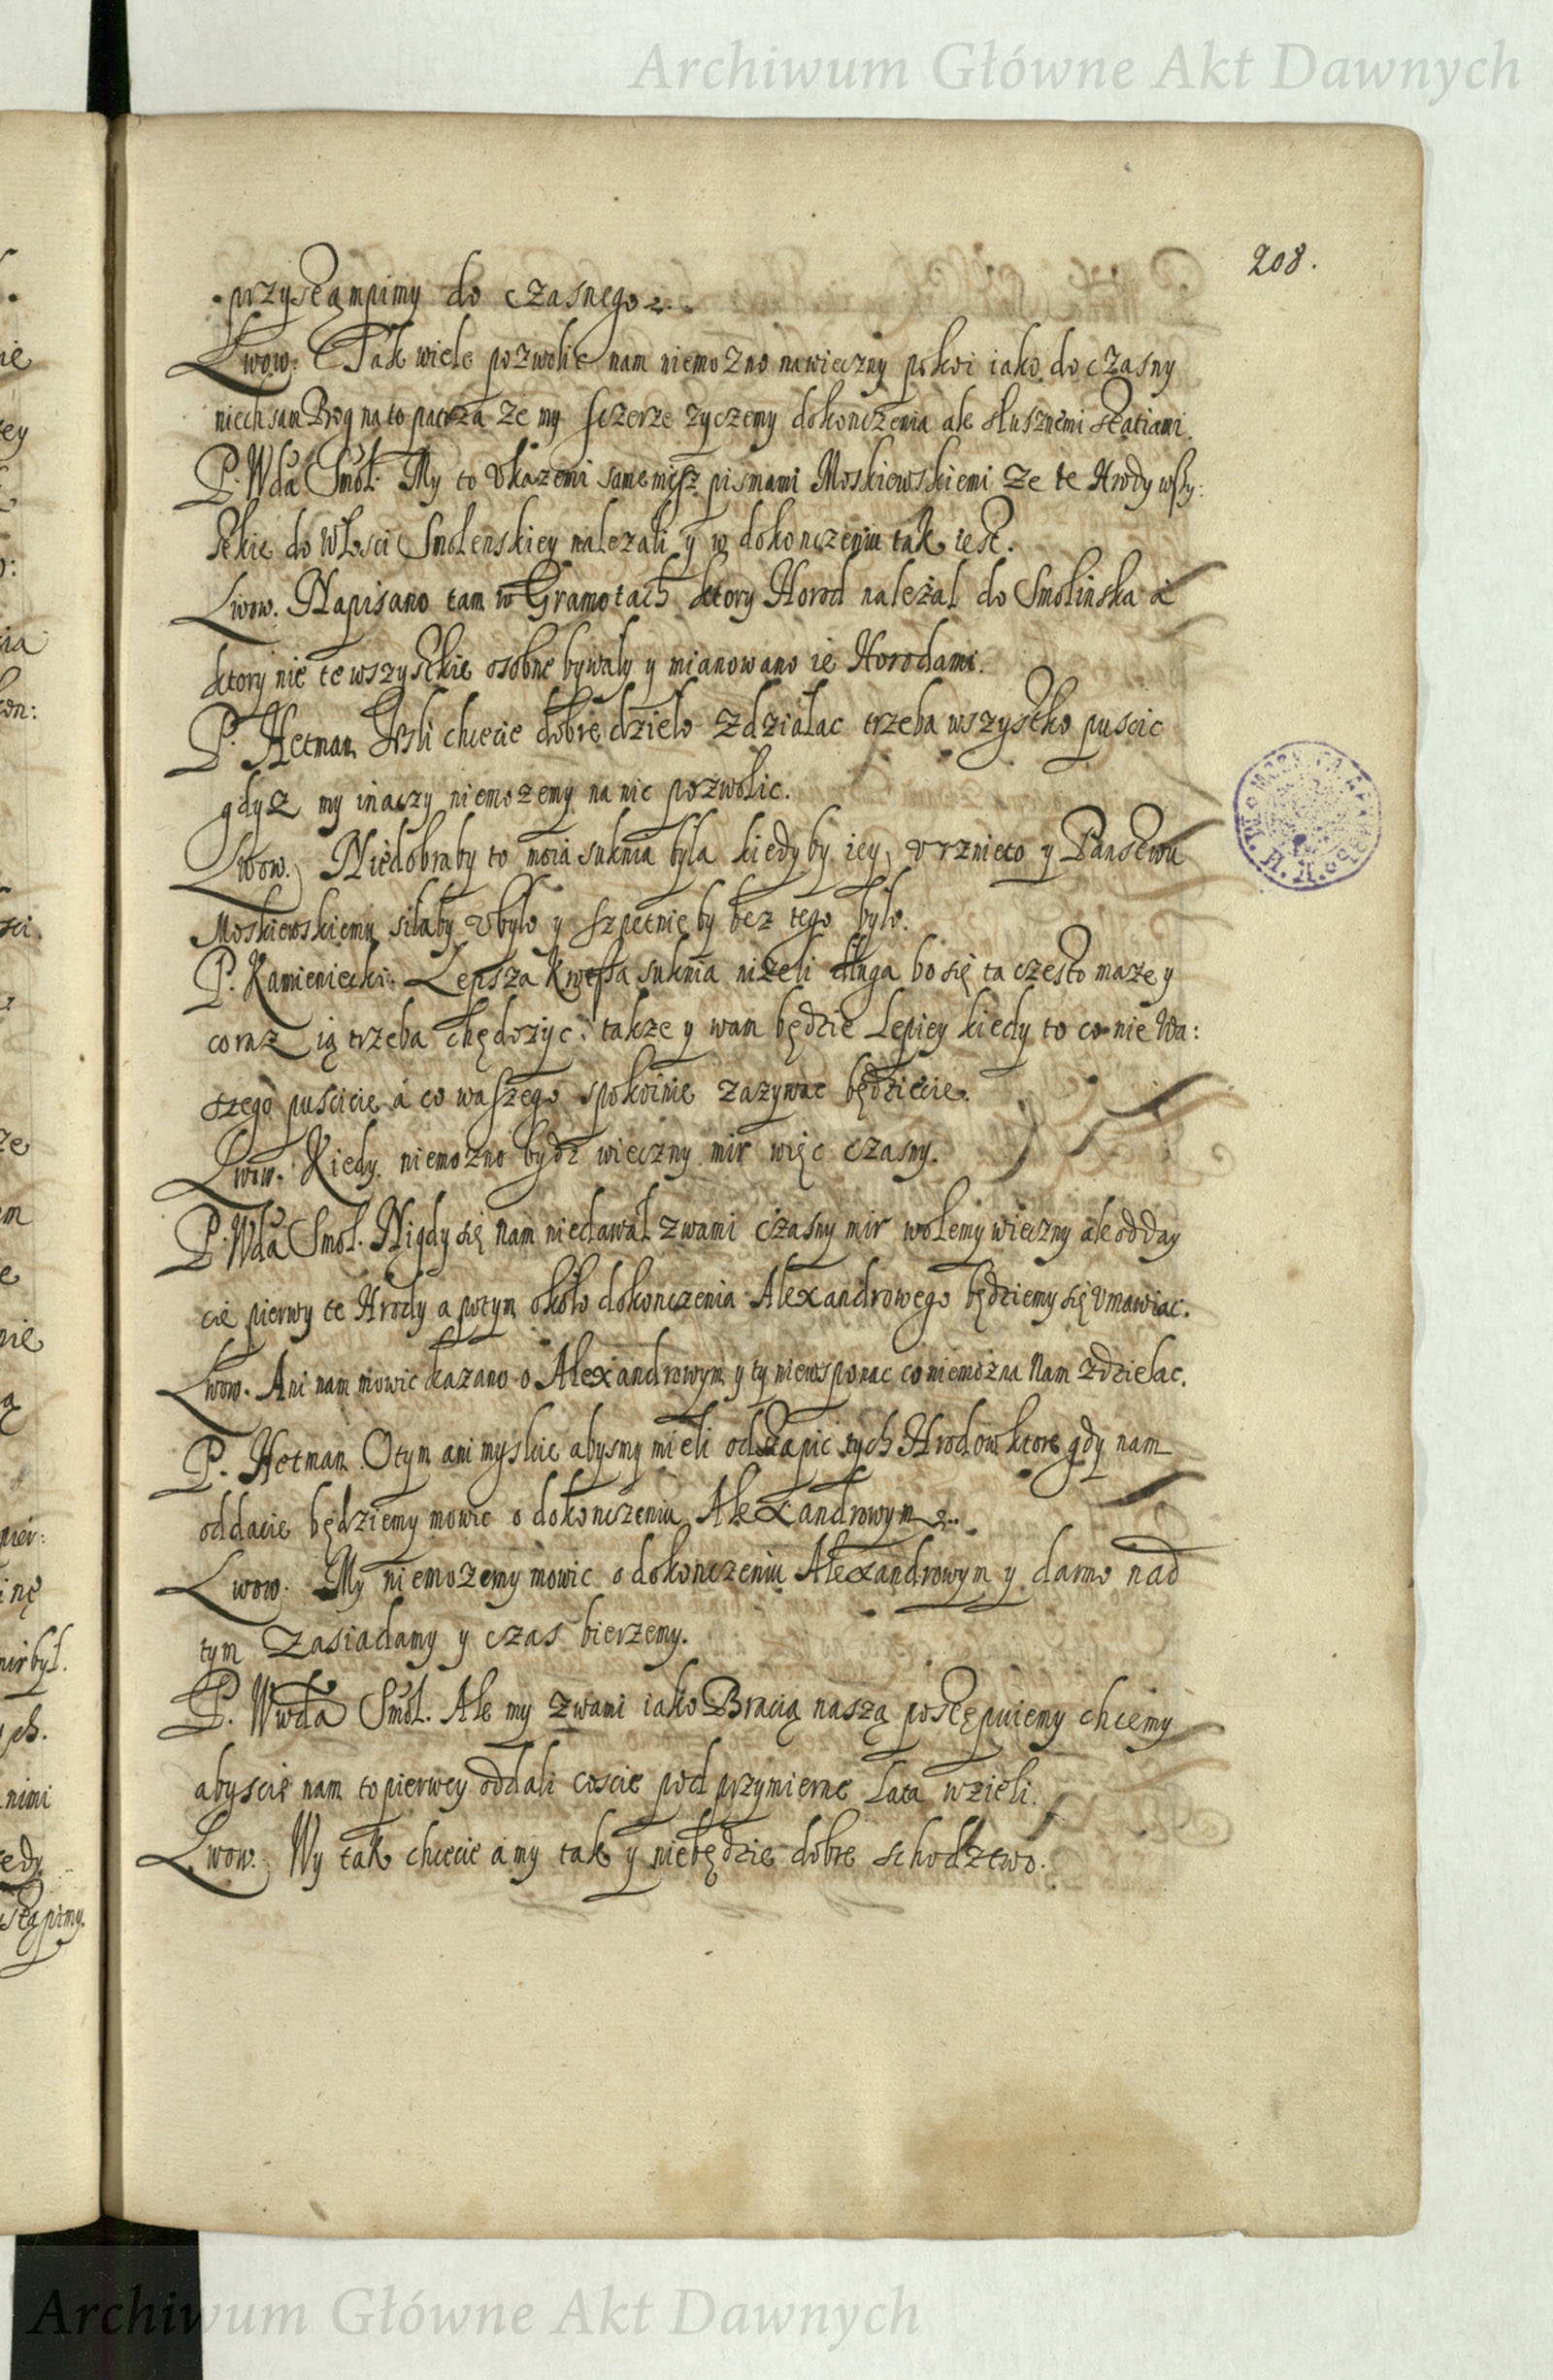 Archiwum Główne Akt Dawnych
208.
przystąmpimy do czasnego
Lwow. Tak wiele pozwolic nam niemozno nawieczny pokoi iako do czasny
niech sam Bog na to patrza ze my szczerze zyczemy dokonczenia ale słusznemi statiami.
P. Wda Smol. My to Ukazemi samemisz pismami Moskiewskiemi ze te Hrody wszy:
stkie do Włosci Smolenskiey nalezali y w dokonczeniu tak iest.
Lwow. Napisano tam w Gramotach ktory Horod należał do Smolinska a
ktory nie te wszystkie osobne bywały y mianowano ie Horodami.
P. Hetman Jesli chcecie dobre dzieło zdziałac trzeba wszystko puscic
gdysz my inaczy niemozemy na nic pozwolic.
Lwow. Niedobraby to moia suknia była kiedyby iey urznieto y Panstwu
Moskiewskiemu siłaby Ubyło y szpetnie by bez tego było.
P. Kamieniecki. Lepsza Krotsza suknia niżeli długa bo się ta czesto maze y
coraz ią trzeba chędożyc, takze y wam będzie Lepiey kiedy to co nie Wa:
szego puscicie a co waszego spokoinie zazywac będziecie.
Lwow. Kiedy niemozno bydz wieczny mir więc czasny.
P. Wda Smol. Nigdy się nam niedawał zwami czasny mir wolemy wieczny ale odday
cie pierwy te Hrody a potym około dokonczenia Alexandrowego będziemy się Umawiac.
Lwow. Ani nam mowic kazano o Alexandrowym y ty niewsponac co niemożna Nam zdzielac.
P. Hetman O tym ani myslcie abysmy mieli odstąpic tych Hrodow ktore gdy nam
oddacie będziemy mowic o dokonczeniu Alexandrowym
Lwow. My niemozemy mowic o dokonczeniu Alexandrowym y darmo nad
tym Zasiadamy y czas bierzemy.
P. Wwda Smol. Ale my zwami iako Bracią naszą postępuiemy chcemy
abyscie nam to pierwey oddali coscie pod przymierne Lata wzieli.
Lwow. Wy tak chcecie a my tak y niebędzie dobre schodztwo.
Archiwum Główne Akt Dawnych